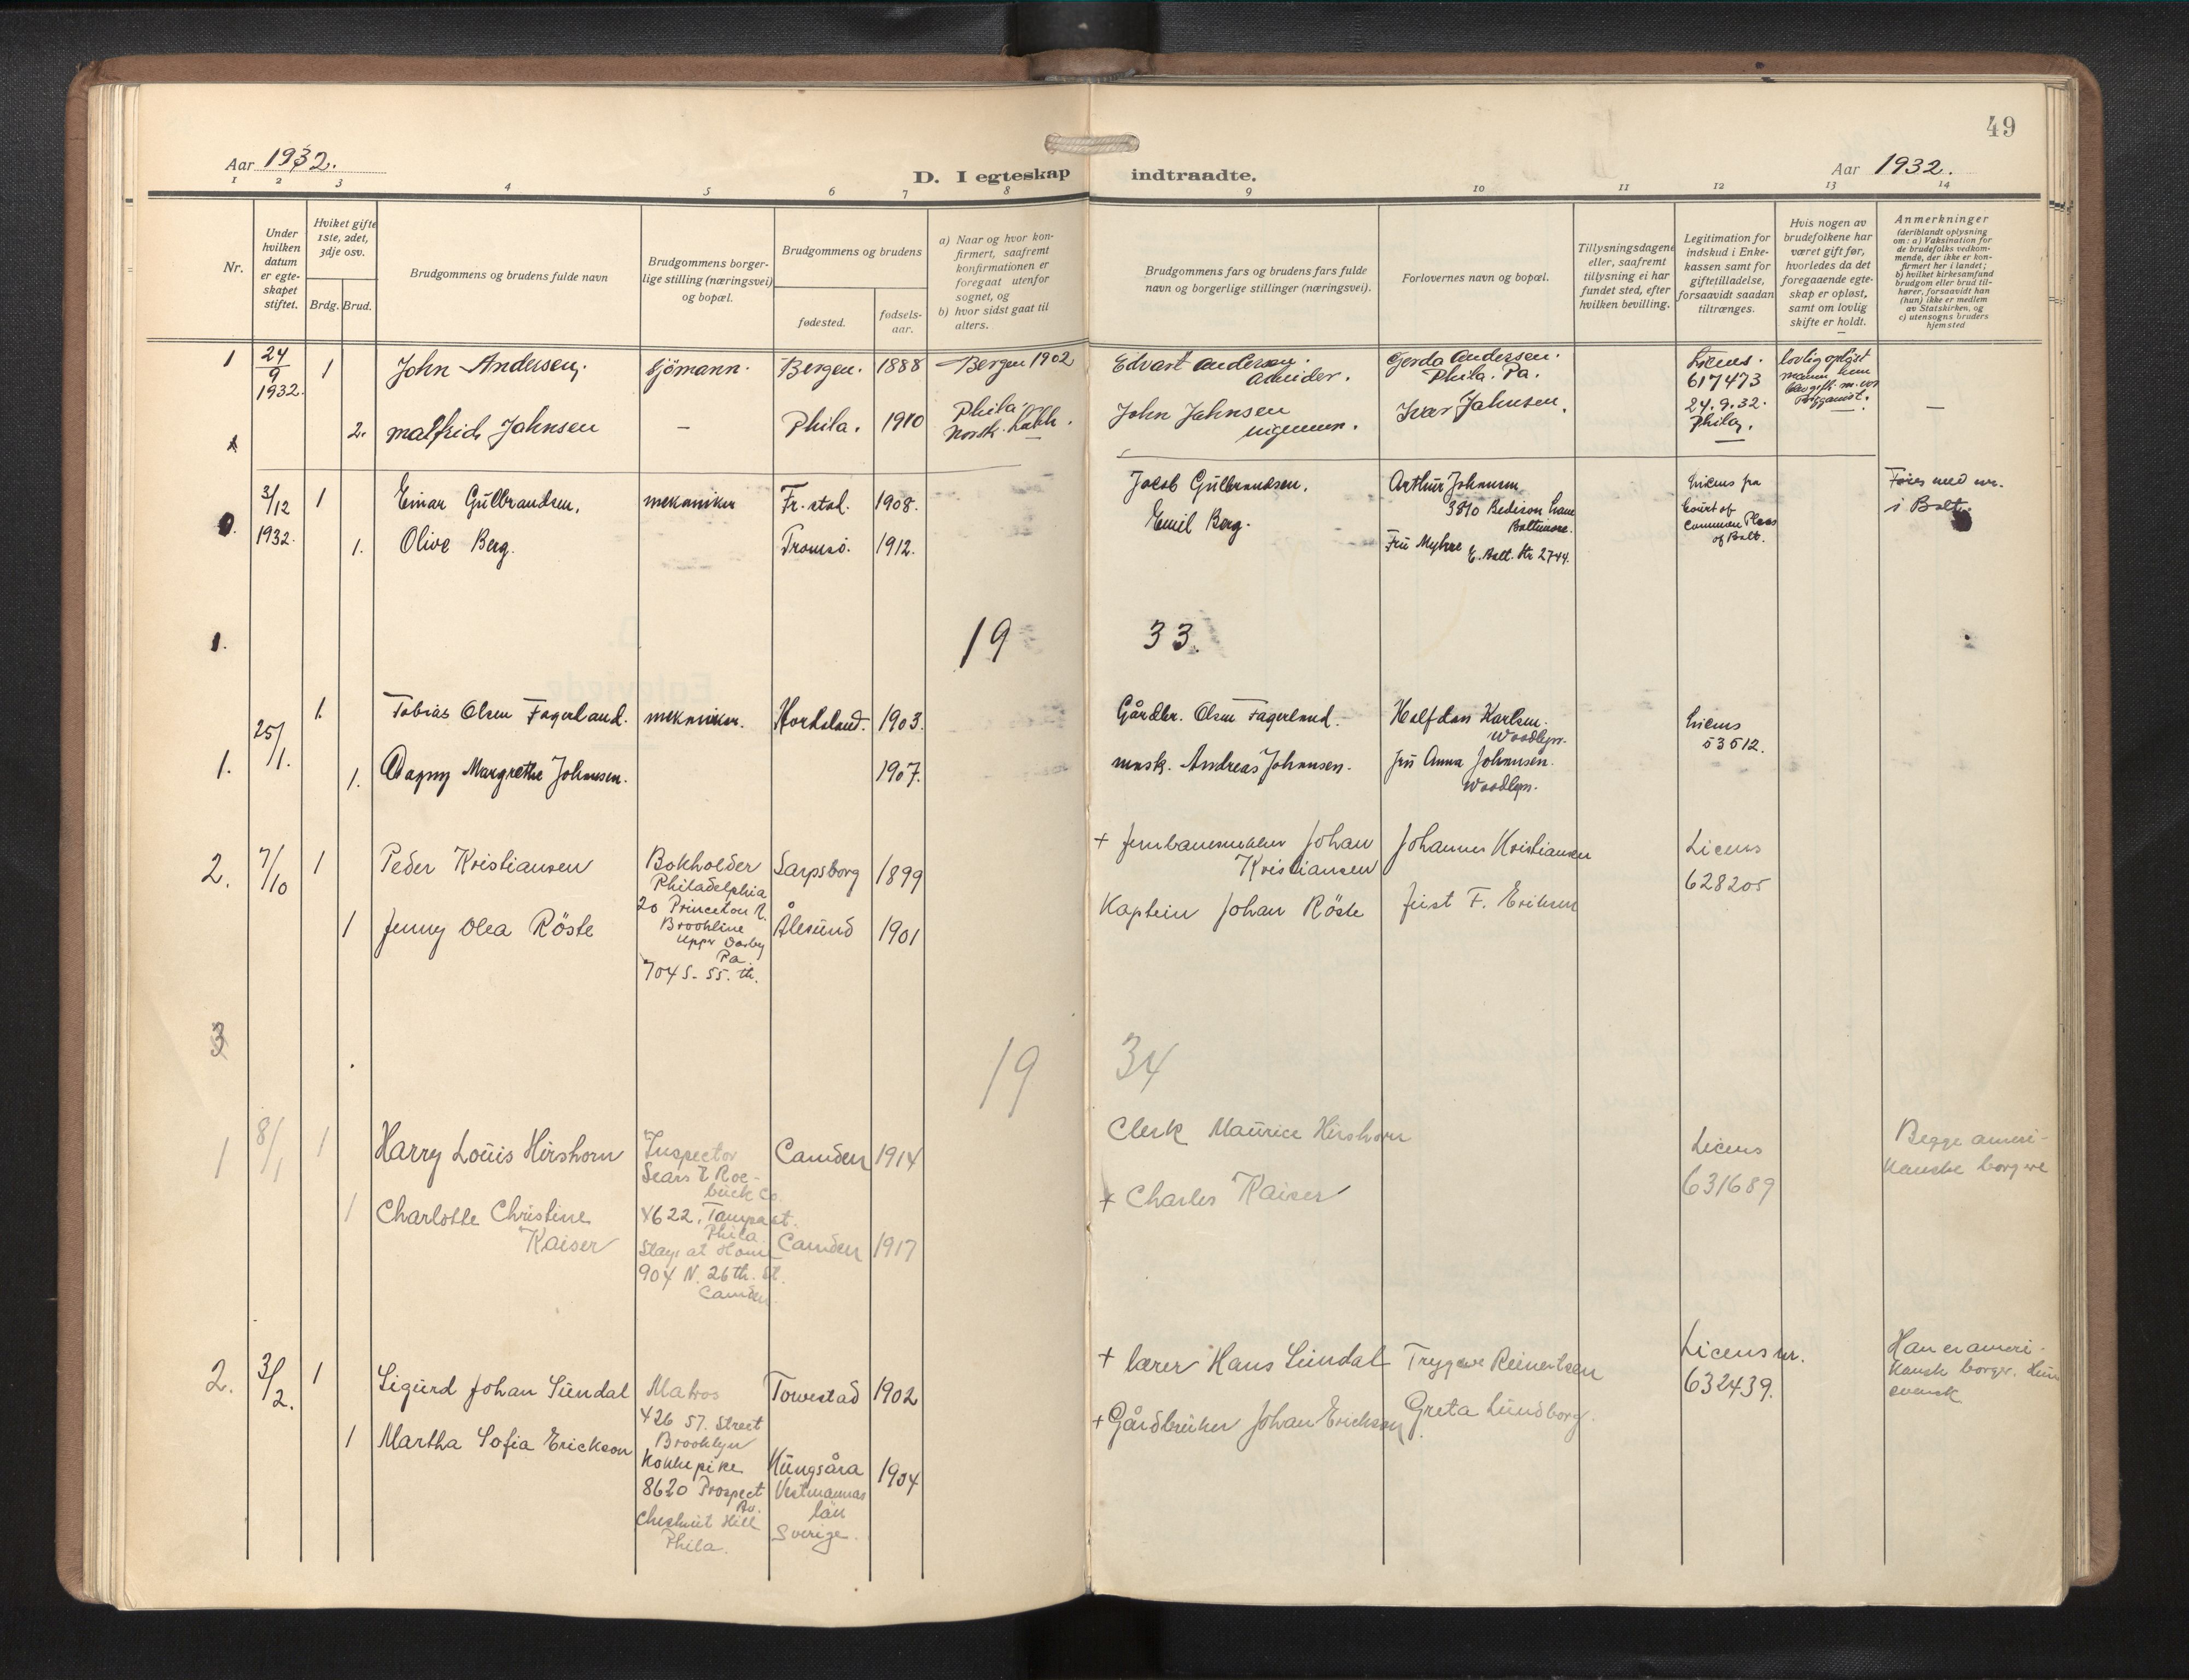 49
Aar 1932.
D. I egteskap indtraadte.
Aar 1932.
1 2 3 4 5 6 7 8 9 10 11 12 13 14
Nr.
Under
hvilken
datum
er egte-
skapet
stiftet.
Hviket gifte
1ste, 2det,
3dje osv.
Brdg. Brud.
Brudgommens og brudens fulde navn
Brudgommens borger-
lige stilling (næringsvei)
og bopæl.
Brudgommens og brudens
fødested.
fødsels-
aar.
a) Naar og hvor kon-
firmert, saafremt
konfirmationen er
foregaat utenfor
sognet, og
b) hvor sidst gaat til
alters.
Brudgommens fars og brudens fars fulde
navn og borgerlige stillinger (næringsvei).
Forlovernes navn og bopæl.
Tillysningsdagene
eller, saafremt
tillysning ei har
fundet sted, efter
hvilken bevilling.
Legitimation for
indskud i Enke-
kassen samt for
giftetilladelse,
forsaavidt saadan
tiltrænges.
Hvis nogen av
brudefolkene har
været gift før,
hvorledes da det
foregaaende egte-
skap er opløst,
samt om lovlig
skifte er holdt.
Anmerkninger
(deriblandt oplysning
om: a) Vaksination for
de brudefolks vedkom-
mende, der ikke er kon-
firmert her i landet;
b) hvilket kirkesamfund
brudgom eller brud til-
hører, forsaavidt han
(hun) ikke er medlem
av Statskirken, og
c) utensogns bruders
hjemsted
1
24
9
1932.
1
John Andersen.
sjömann.
Bergen. 1888
Bergen 1902
Edvart Andersen.
Arbeider.
Gerda Andersen.
Phila. Pa.
Licens.
617473
24.9.32.
Phila.
lovlig opløst
2.
Malfrid Jahnsen
—
Phila. 1910
Phila.
Norsk. luth.
John Jahnsen
Ivar Jahnsen.
—
3/12
1932.
1
Einar Gulbrandsen.
mekaniker
Fr. stad. 1908.
Jacob Gulbrandsen.
Arthur Johnsen
Baltimore.
Licens fra
Court of
Common Pleas
of Balt.
Føres med nr.
i Balt.
0.
1.
Olive Berg.
Tromsö. 1912.
Emil Berg.
Fru Myhre E. Balt. Str. 2744.
1.
19 33.
25/1.
1.
Tobias Olsen Fagerland.
mekaniker.
Hordaland. 1903.
Gårdbr. Olsen Fagerland.
Halfdan Karlsen.
Woodlyn.
Licens
53512.
1.
1.
Dagny Margrethe Johnsen.
1907.
mask. Andreas Johnnsen.
fru Anna Johnnsen.
Woodlyn.
2.
7/10
1
Peder Kristiansen
Bokholder
Philadelphia
20 Princeton R.
Brookline
Upper Darby
Pa.
Sarpsborg 1899
+ Johan
Kristiansen
Johannes Kristiansen
Licens
628205
1
Jenny Olea Röste
704 S. 55. th.
Ålesund 1901
Kaptein Johan Röste
F. Eriksen
3
19 34
1
8/1
1
Harry Louis Hirshorn
Inspector
Sears & Roe-
buck Co.
4622. Tampa st.
Phila.
Camden 1914
Clerk Maurice Hirshorn
Licens
631689
Begge ameri-
kanske borgere
1
Charlotte Christine
Kaiser
Stays at Home
904 N. 26th. St.
Camden.
Camden 1917
+ Charles Kaiser
2.
3/2.
1
Sigurd Johan Sundal
Matros
426 57. Street
Brooklyn
Torvestad 1902
+ lærer Hans Sundal
Trygve Reinertsen
Licens nr.
632439.
Han er ameri-
kansk borger. Hun
svensk
1
Martha Sofia Erickson
Kokkepike
8620 Prospect
Av.
Chestnut Hill
Phila.
Kungsåra
Vestmannas
län
Sverige.
1904
+ Gårdbruker Johan Erickson
Greta Lundborg.